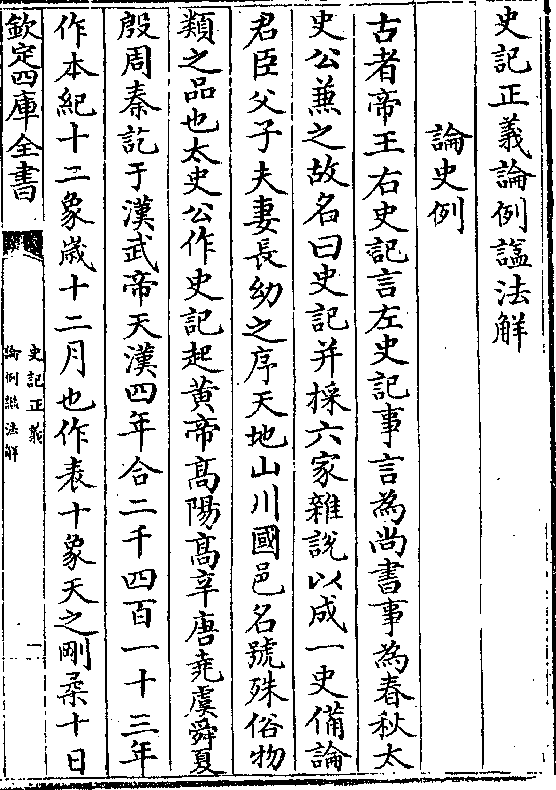 史記正義論例諡法解
論史例
古者帝王右史記言左史記事言為尚書事為春秋太
史公蒹之故名曰史記并採六家雜說以成一史備論
君臣父子夫妻長幼之序天地山川國邑名號殊俗物
類之品也太史公作史記起黃帝髙陽髙辛唐堯虞舜夏
殷周秦訖于漢武帝天漢四年合二千四百一十三年
作本紀十二象歲十二月也作表十象天之剛柔十日
欽定四庫全書
史記正義
論例諡法解
一